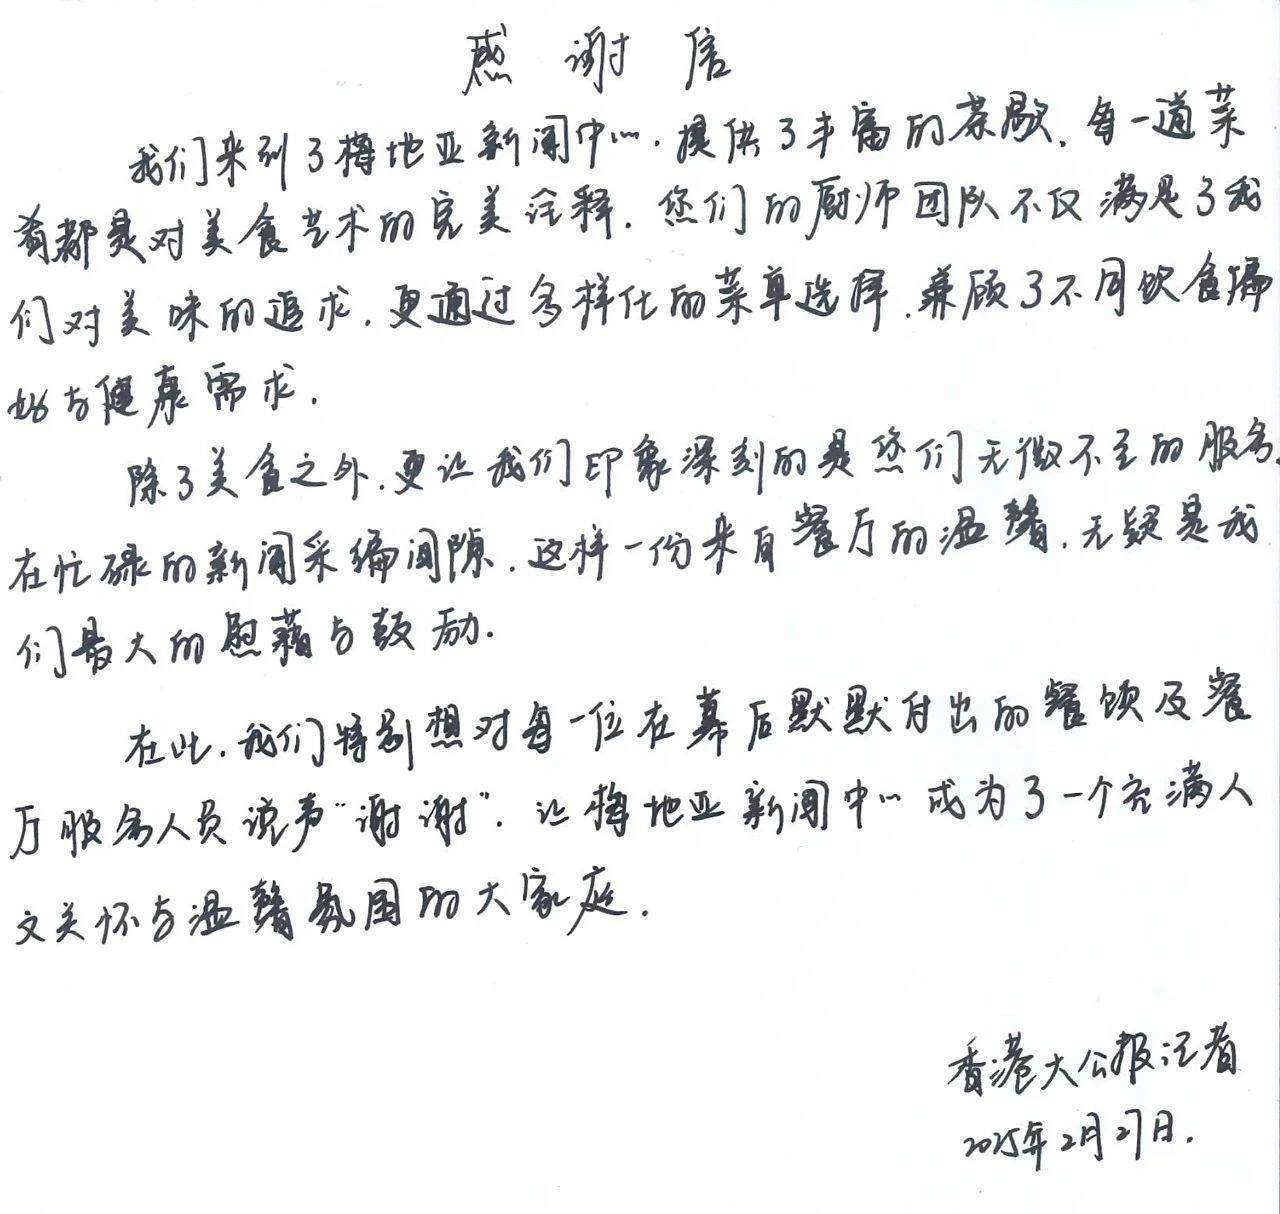 感谢信
我们来到了梅地亚新闻中心.提供了丰富的茶歇.每一道菜
肴都是对美食艺术的完美诠释.您们的厨师团队不仅满足了我
们对美味的追求.更通过多样化的菜单选择.兼顾了不同饮食偏
好与健康需求.
除了美食之外.更让我们印象深刻的是您们无微不至的服务.
在忙碌的新闻采编间隙.这样一份来自餐厅的温馨.无疑是我
们最大的慰藉与鼓励.
在此.我们特别想对每一位在幕后默默付出的餐饮及餐
厅服务人员说声“谢谢”.让梅地亚新闻中心成为了一个充满人
文关怀与温馨氛围的大家庭.
香港大公报记者
2025年2月27日.